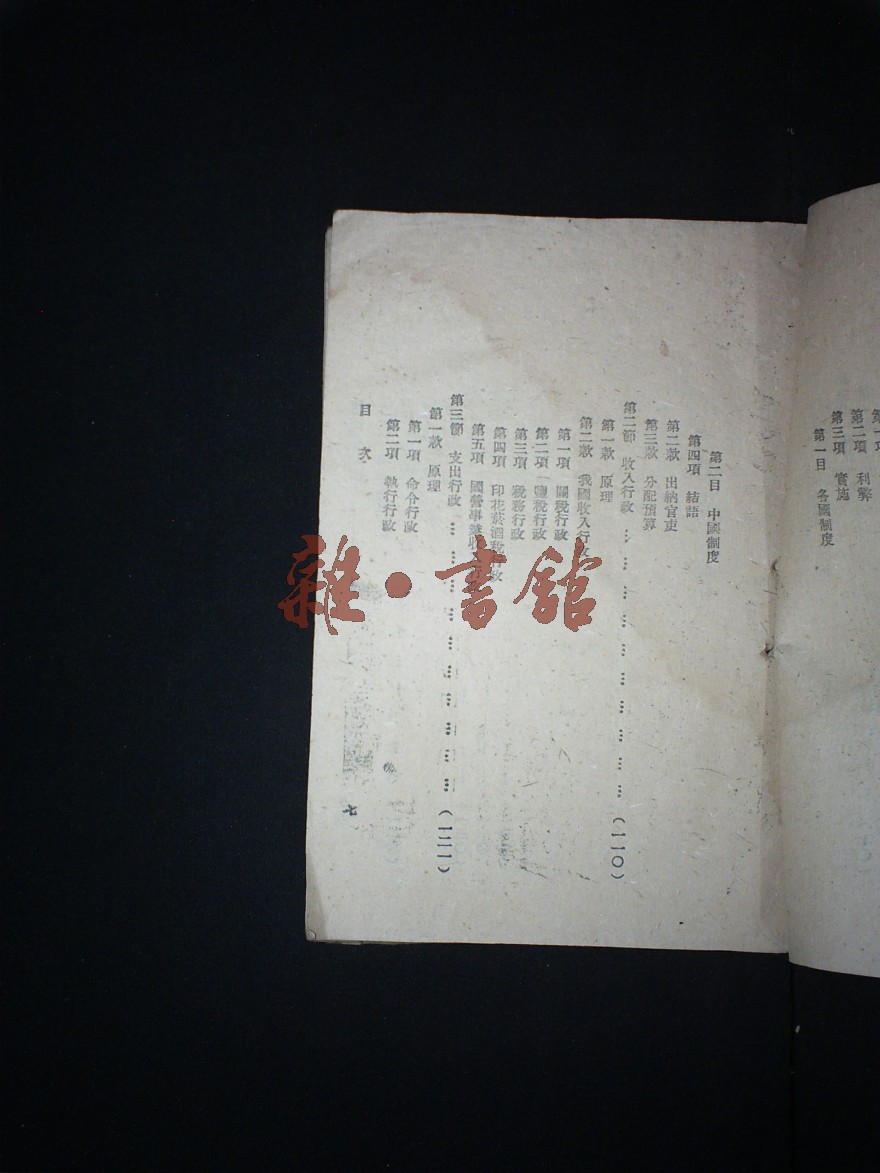 第二項 利弊
第三項 實施
第一目 各國制度
第二目 中國制度
第四項 結語
第二款 出納官吏
第三款 分配預算
第二節 收入行政 ………………………… (一一〇)
第一款 原理
第二款 我國收入行政
第一項 關稅行政
第二項 鹽稅行政
第三項 稅務行政
第四項 印花菸酒稅行政
第五項 國營事業收
第三節 支出行政 ………………………… (一二一)
第一款 原理
第一項 命令行政
第二項 執行行政
目次
七
雜·書館